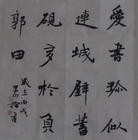 愛書珍似
連城璧蓄
硯多於負
郭田